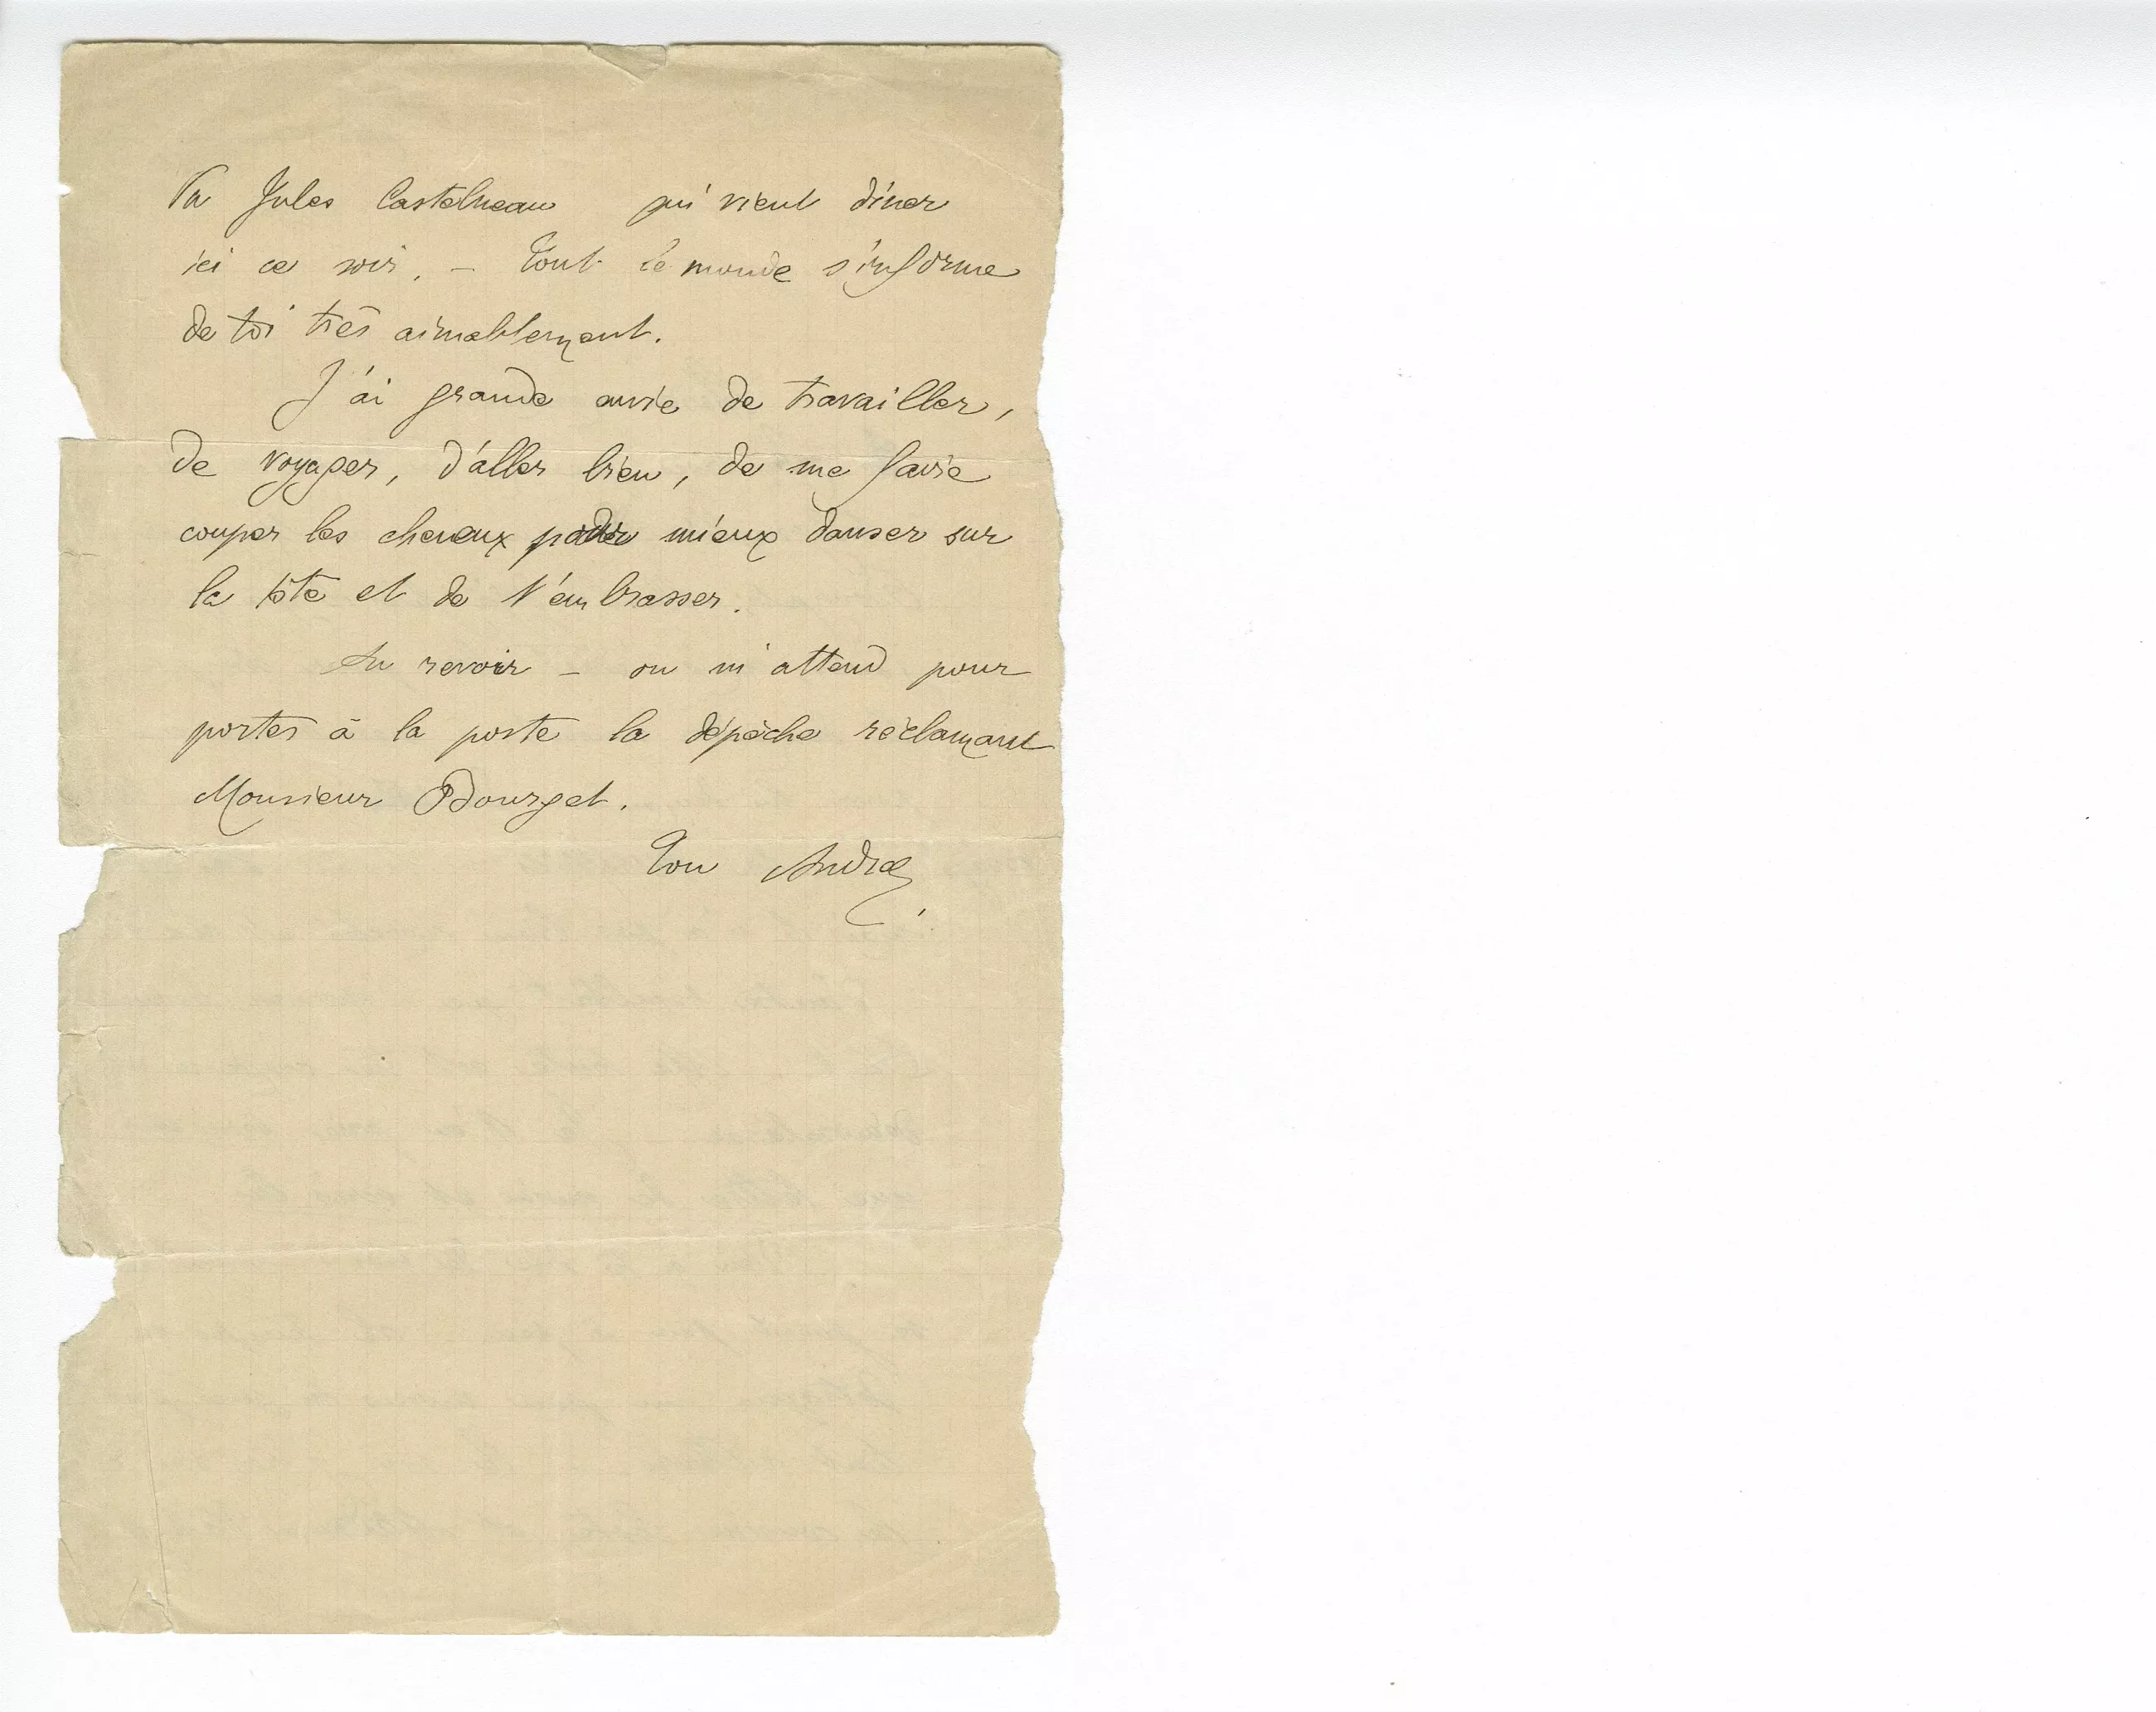 Vu Jules Castelneau qui vient dîner
ici ce soir. – Tout le monde s'informe
de toi très aimablement.
J'ai grande envie de travailler,
de voyager, d'aller bien, de me faire
couper les cheveux pour mieux danser sur
la tête et de t'embrasser.
Au revoir – on m'attend pour
porter à la poste la dépèche réclamant
Monsieur Bourget.
Ton André